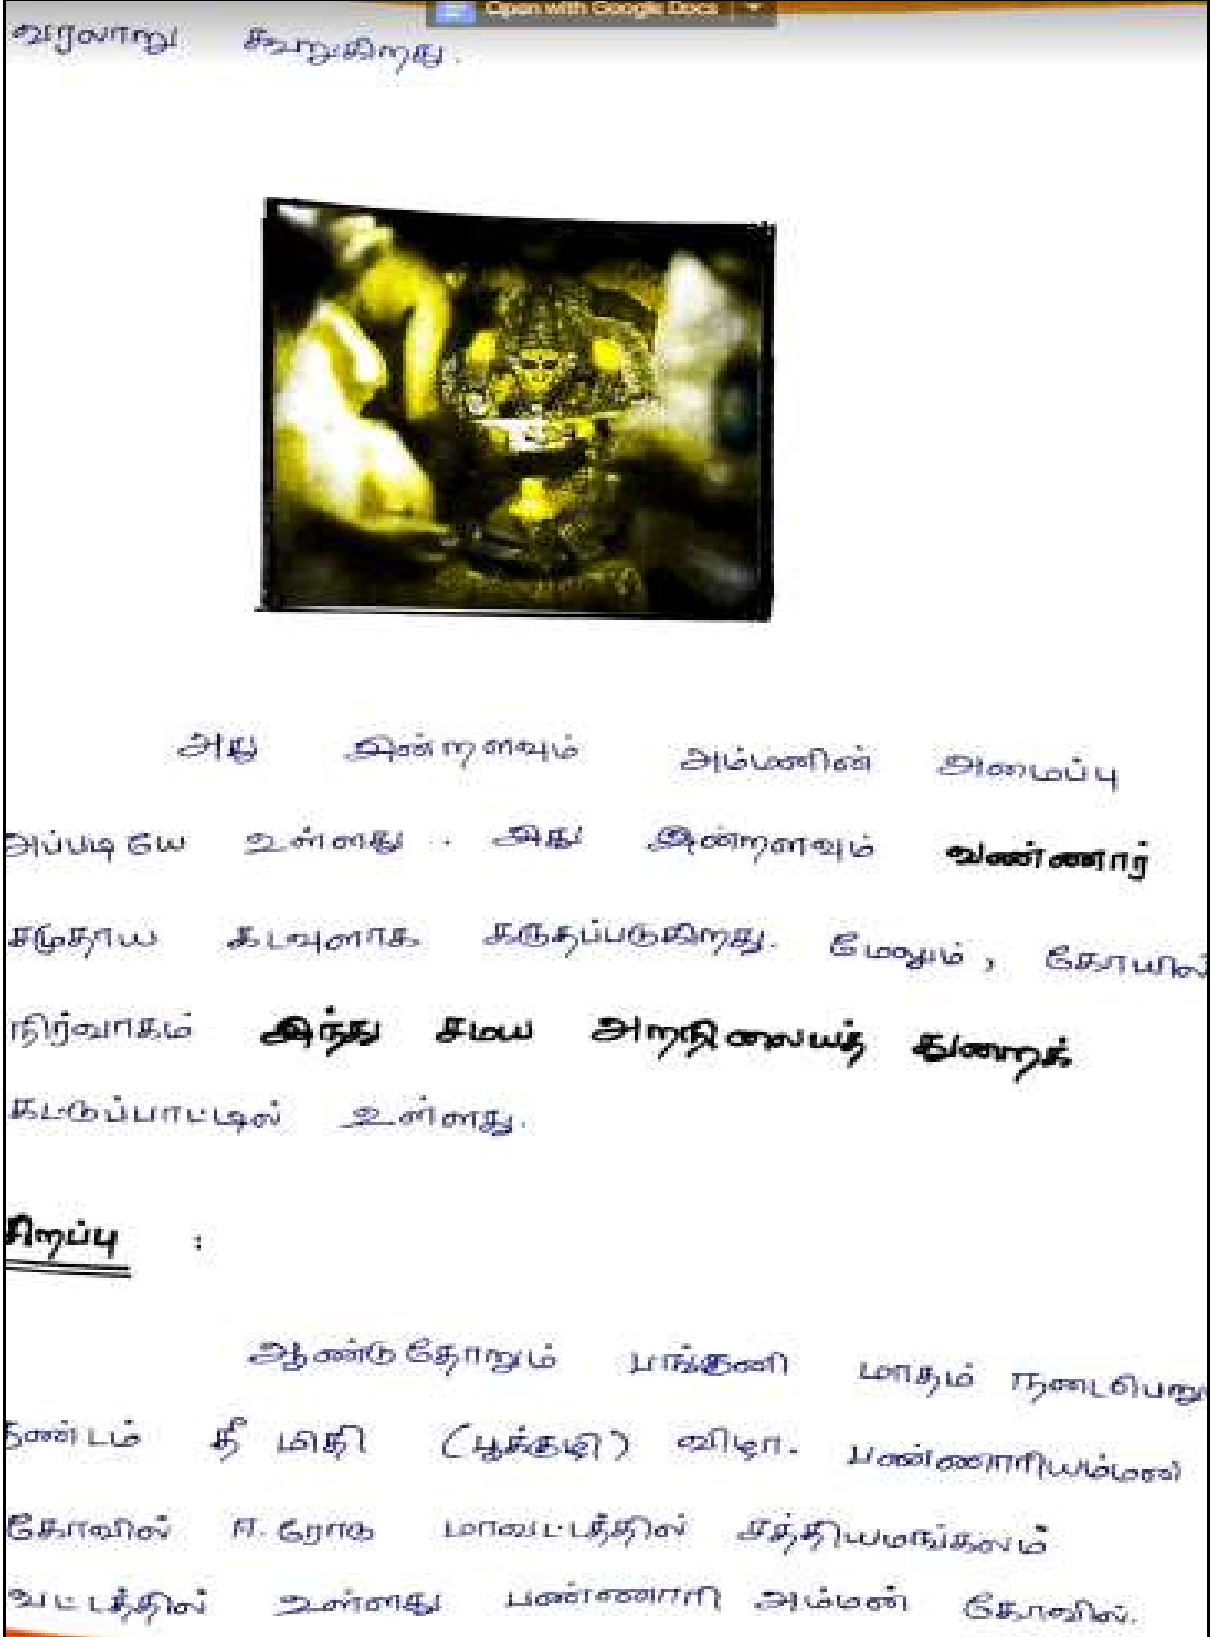 Open with Google Docs
வரலாறு கூறுகிறது.
அது இன்றளவும் அம்மனின் அமைப்பு
அப்படியே உள்ளது. அது இன்றளவும் வண்ணார்
சமுதாய கடவுளாக கருதப்படுகிறது. மேலும், கோயில்
நிர்வாகம் இந்து சமய அறநிலையத் துறைக்
கட்டுப்பாட்டில் உள்ளது.
சிறப்பு :
ஆண்டுதோறும் பங்குனி மாதம் நடைபெறு
தீ மிதி (பூக்குழி) விழா. பண்ணாரியம்மன்
கோவில் ஈரோடு மாவட்டத்தில் சத்தியமங்கலம்
வட்டத்தில் உள்ளது பண்ணாரி அம்மன் கோவில்.